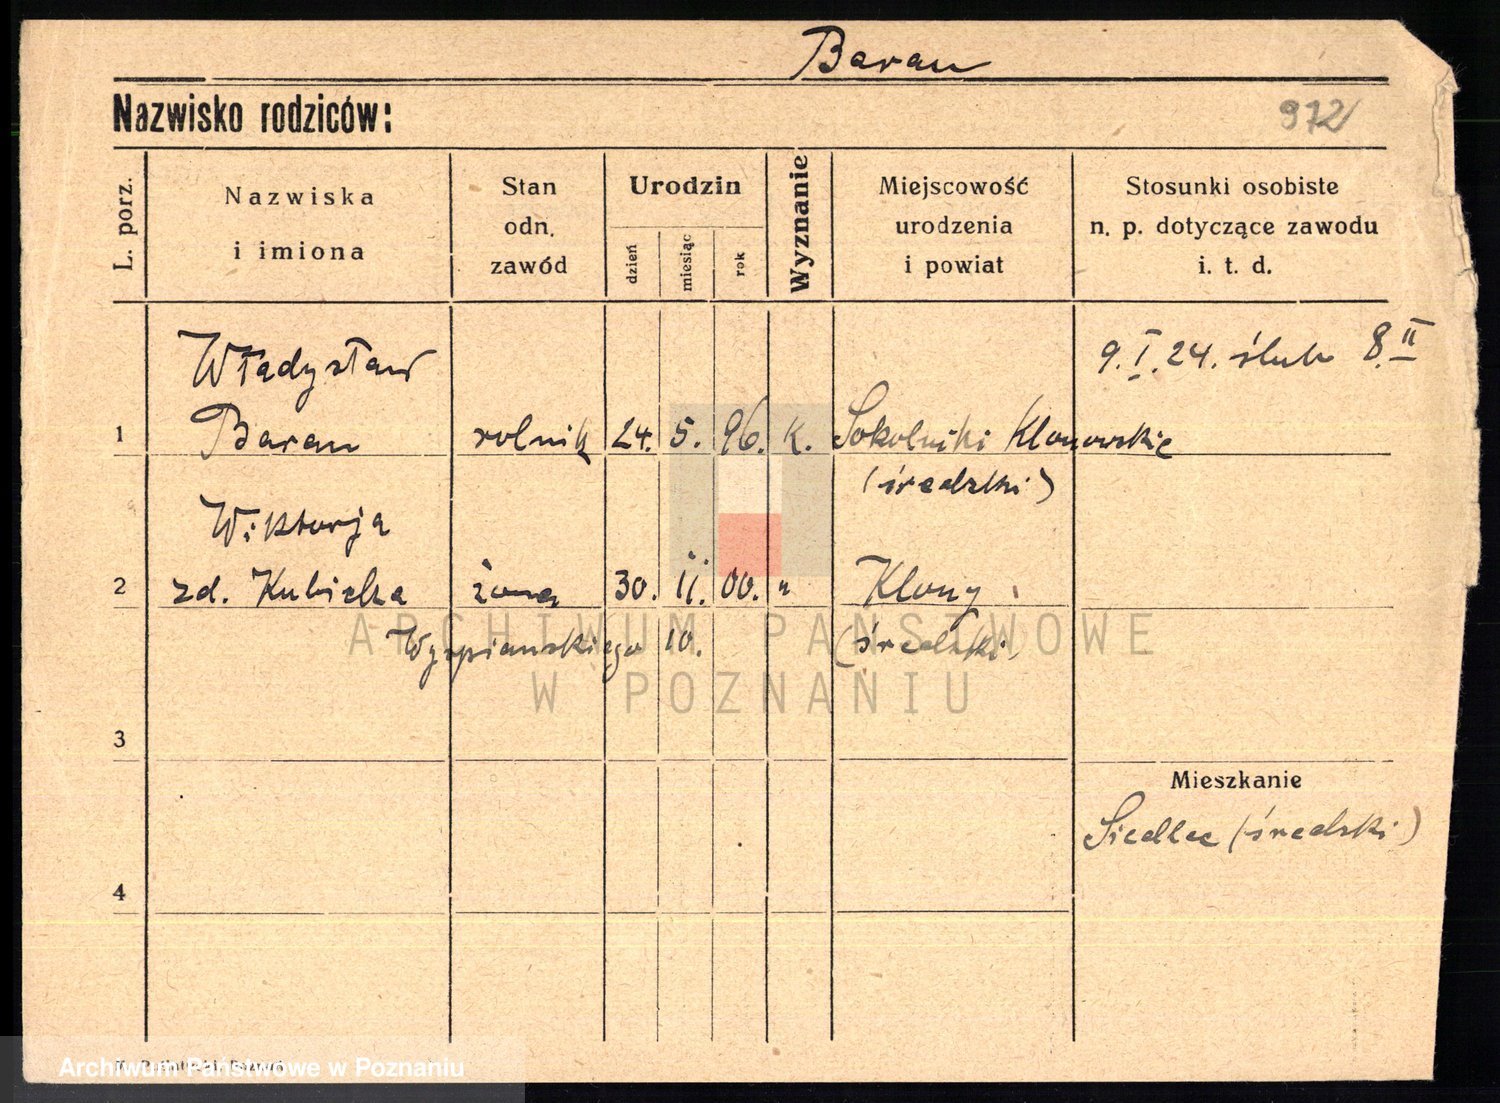 Baran
Nazwisko rodziców:
972
L. porz.
Nazwiska
i imiona
Stan
odn.
zawód
Urodzin
dzień
miesiąc
rok
Wyznanie
Miejscowość
urodzenia
i powiat
Stosunki osobiste
n. p. dotyczące zawodu
i. t. d.
9.I.24. ślub 8.II
Władysław
1 Baran rolnik 24. 5. 96. K. Sokolniki Klonowskie
(średzki)
Wiktorja
2 zd. Kubicka żona 30. 11. 00. " Klony
Wyspiańskiego 10. (średzki
ARCHIWUM PAŃSTWOWE
W POZNANIU
3
Mieszkanie
Siedlec (średzki)
4
Archiwum Państwowe w Poznaniu